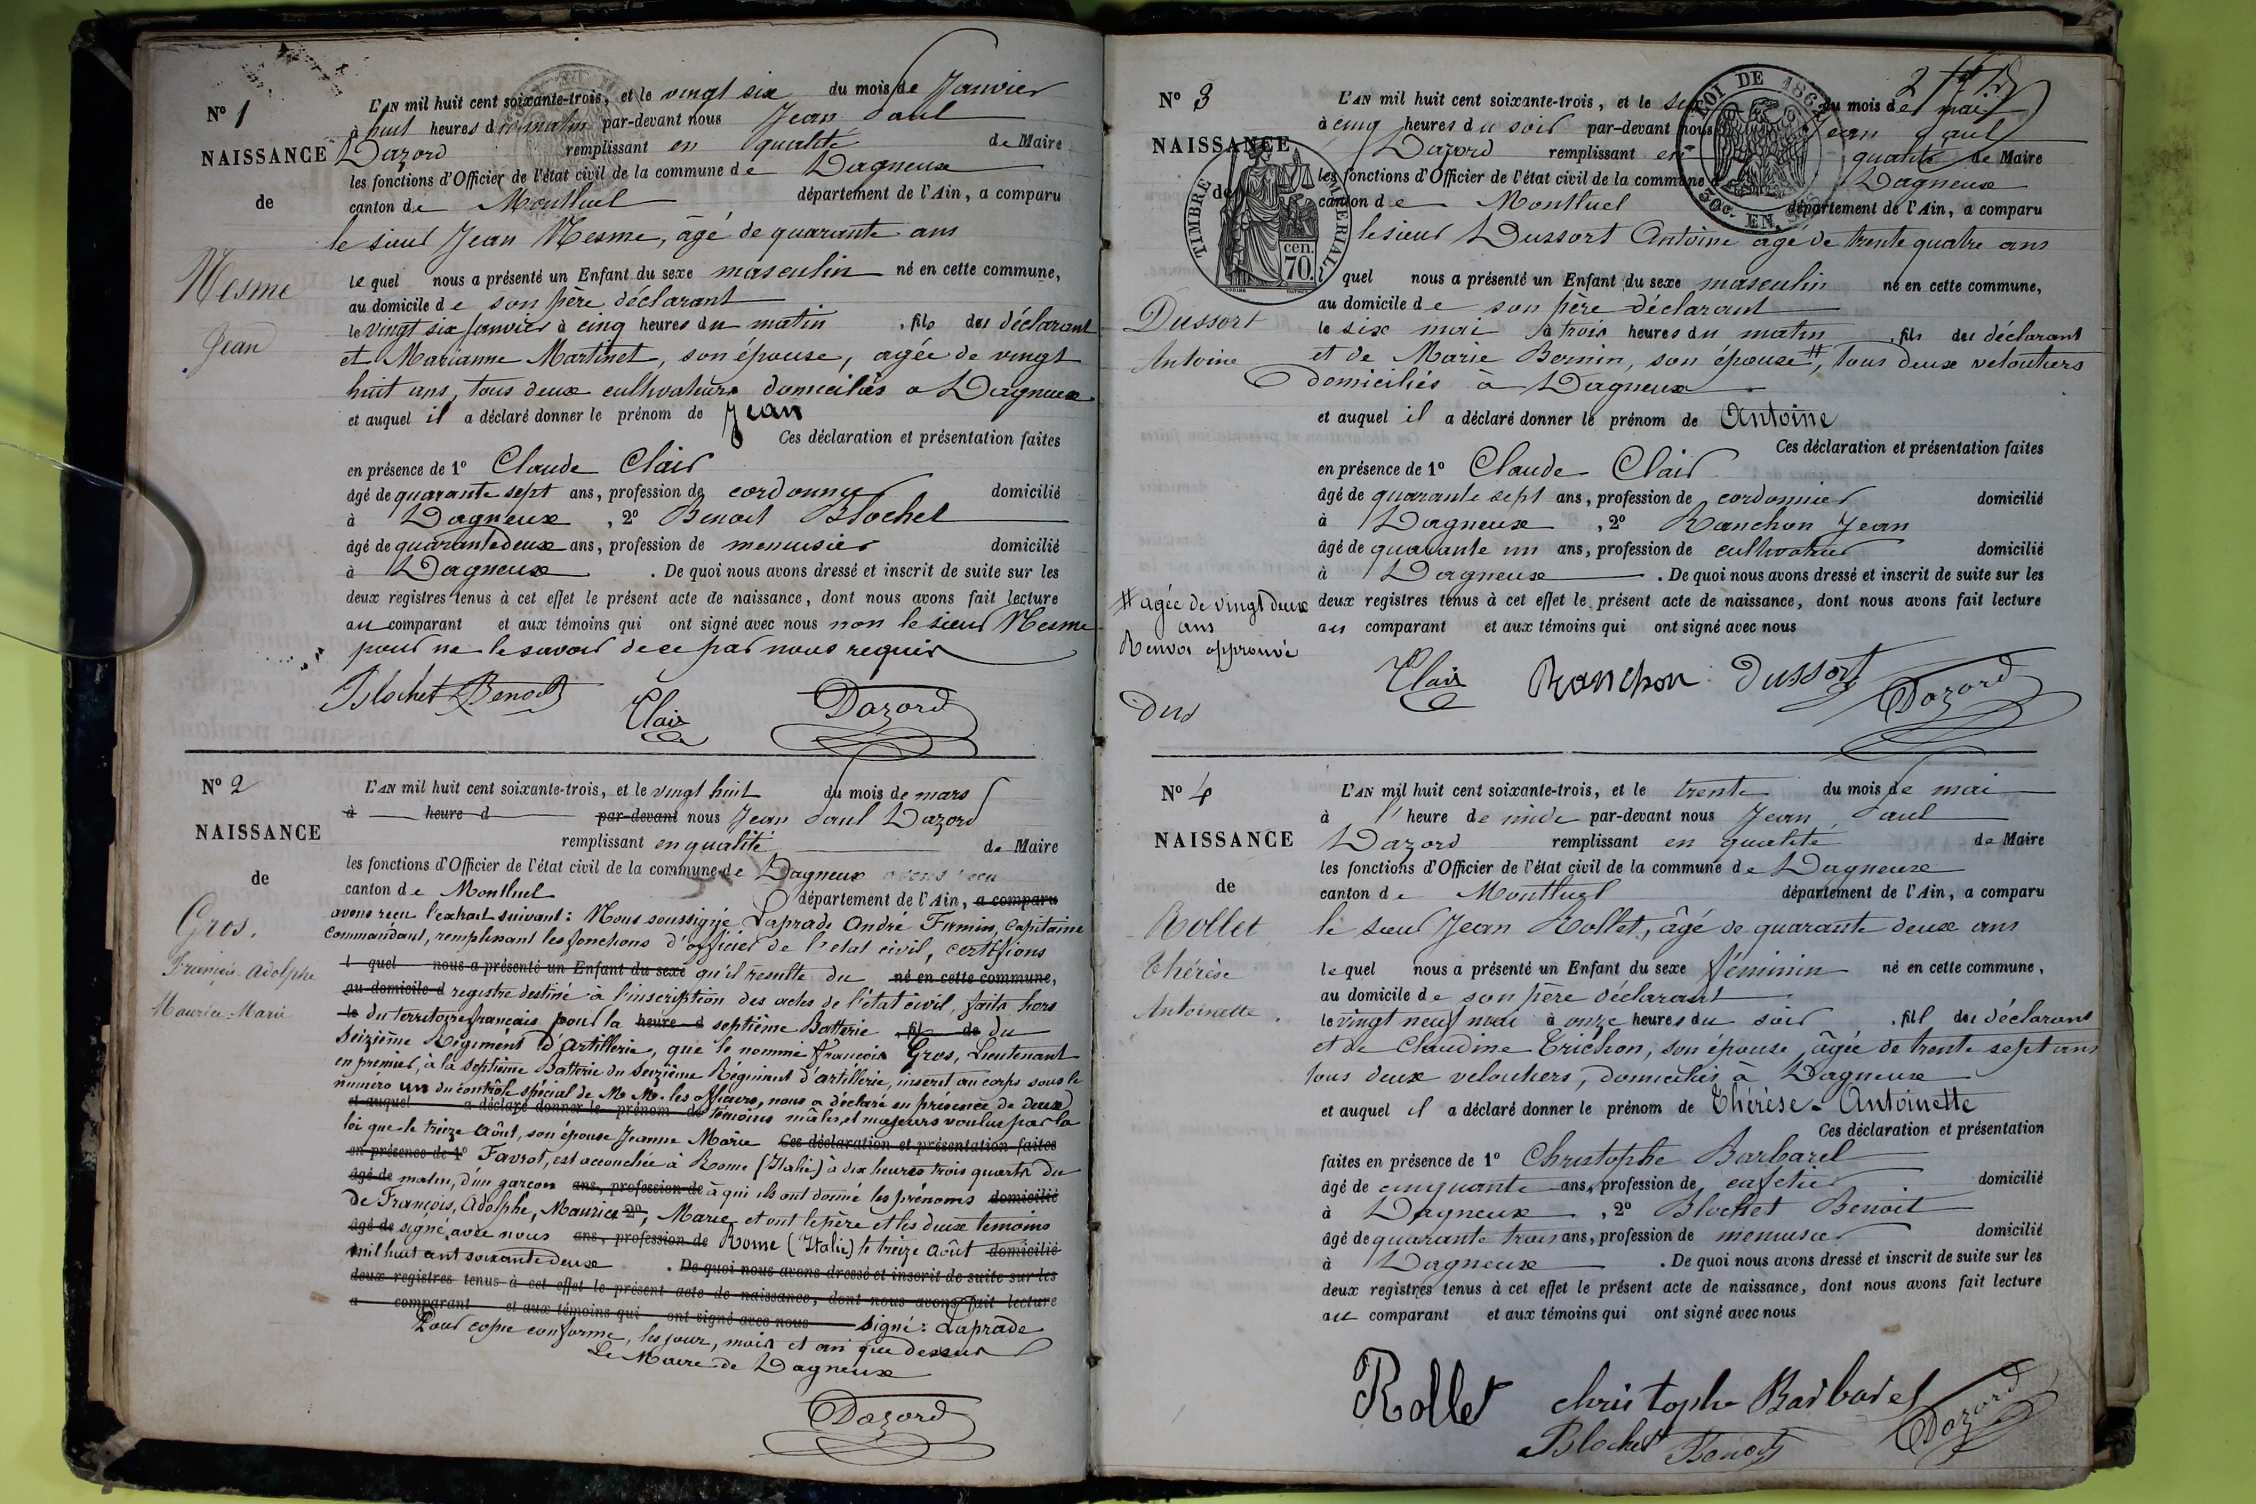 N° 1
NAISSANCE
de
Mesme
Jean
L'AN mil huit cent soixante-trois, et le vingt six du mois de Janvier
à huit heures du matin par-devant nous Jean Paul
Dazord remplissant en qualité de Maire
les fonctions d'Officier de l'état civil de la commune de Dagneux
canton de Montluel département de l'Ain, a comparu
le sieur Jean Mesme, âgé de quarante ans
lequel nous a présenté un Enfant du sexe masculin né en cette commune,
au domicile de son père déclarant
le vingt six Janvier à cinq heures du matin, fils du déclarant
et Marianne Martinet, son épouse, agée de vingt
huit ans, tous deux cultivateurs domiciliés à Dagneux
et auquel il a déclaré donner le prénom de Jean
Ces déclaration et présentation faites
en présence de 1° Claude Clair
âgé de quarante sept ans, profession de cordonnier domicilié
à Dagneux, 2° Benoit Blochet
âgé de quarante deux ans, profession de menuisier domicilié
à Dagneux. De quoi nous avons dressé et inscrit de suite sur les
deux registres tenus à cet effet le présent acte de naissance, dont nous avons fait lecture
au comparant et aux témoins qui ont signé avec nous non le sieur Mesme
pour ne le savoir de ce par nous requis
Blochet Benoit Clair Dazord
N° 2
NAISSANCE
de
Gros.
François Adolphe
Maurice Marie
L'AN mil huit cent soixante-trois, et le vingt huit du mois de mars
à heure d par-devant nous Jean Paul Dazord
remplissant en qualité de Maire
les fonctions d'Officier de l'état civil de la commune de Dagneux
canton de Montluel département de l'Ain, a comparu
avons reçu l'extrait suivant : Nous soussigné Laprade André Firmin, Capitaine
commandant, remplissant les fonctions d'officier de l'état civil, certifions
l quel nous a présenté un Enfant du sexe qu'il résulte du né en cette commune,
au domicile d registre destiné à l'inscription des actes de l'état civil, faits hors
le du territoire français pour la heure d septième Batterie fil de du
Seizième Régiment d'artillerie, que le nommé François Gros, Lieutenant
en premier, à la septième Batterie du Seizième Régiment d'artillerie, inscrit au corps sous le
numéro un du contrôle spécial de MM. les officiers, nous a déclaré en présence de deux
et auquel a déclaré donner le prénom de témoins mâles et majeurs voulus par la
loi que le treize Août, son épouse Jeanne Marie Ces déclaration et présentation faites
en présence de 1° Favrot, est accouchée à Rome (Italie) à dix heures trois quarts du
âgé de matin, d'un garçon ans, profession de à qui ils ont donné les prénoms domicilié
de François, Adolphe, Maurice 2°, Marie et ont le père et les deux témoins
âgé de signé avec nous ans, profession de Rome (Italie) le treize Août domicilié
mil huit cent soixante deux. De quoi nous avons dressé et inscrit de suite sur les
deux registres tenus à cet effet le présent acte de naissance, dont nous avons fait lecture
a comparant et aux témoins qui ont signé avec nous Signé : Laprade
Pour copie conforme, les jour, mois et an que dessus
Le Maire de Dagneux
Dazord
N° 3
NAISSANCE
de
TIMBRE IMPERIAL
cen. 70.
LOI DE 186
EN
Dussort
Antoine
L'AN mil huit cent soixante-trois, et le six du mois de mai
à cinq heures du soir par-devant nous Jean Paul
Dazord remplissant en qualité de Maire
les fonctions d'Officier de l'état civil de la commune d Dagneux
canton de Montluel département de l'Ain, a comparu
le sieur Dussort Antoine agé de trente quatre ans
l quel nous a présenté un Enfant du sexe masculin né en cette commune,
au domicile de son père déclarant
le six mai à trois heures du matin, fils du déclarant
et de Marie Bernin, son épouse #, tous deux veloutiers
domiciliés à Dagneux
et auquel il a déclaré donner le prénom de Antoine
Ces déclaration et présentation faites
en présence de 1° Claude Clair
âgé de quarante sept ans, profession de cordonnier domicilié
à Dagneux, 2° Ranchon Jean
âgé de quarante un ans, profession de cultivateur domicilié
à Dagneux. De quoi nous avons dressé et inscrit de suite sur les
deux registres tenus à cet effet le présent acte de naissance, dont nous avons fait lecture
au comparant et aux témoins qui ont signé avec nous
# agée de vingt deux
ans
Renvoi approuvé
Clair Ranchon Dussort Dazord
N° 4
NAISSANCE
de
Rollet
Thérèse
Antoinette.
L'AN mil huit cent soixante-trois, et le trente du mois de mai
à l'heure de midi par-devant nous Jean Paul
Dazord remplissant en qualité de Maire
les fonctions d'Officier de l'état civil de la commune de Dagneux
canton de Montluel département de l'Ain, a comparu
le sieur Jean Rollet, âgé de quarante deux ans
lequel nous a présenté un Enfant du sexe féminin né en cette commune,
au domicile de son père déclarant
le vingt neuf mai à onze heures du soir, fill du déclarant
et de Claudine Trichon, son épouse, âgée de trente sept ans
tous deux veloutiers, domiciliés à Dagneux
et auquel il a déclaré donner le prénom de Thérèse-Antoinette
Ces déclaration et présentation
faites en présence de 1° Christophe Barbarel
âgé de cinquante ans, profession de cafetier domicilié
à Dagneux, 2° Blochet Benoit
âgé de quarante trois ans, profession de menuisier domicilié
à Dagneux. De quoi nous avons dressé et inscrit de suite sur les
deux registres tenus à cet effet le présent acte de naissance, dont nous avons fait lecture
au comparant et aux témoins qui ont signé avec nous
Rollet christophe Barbarel
Blochet Benoit Dazord